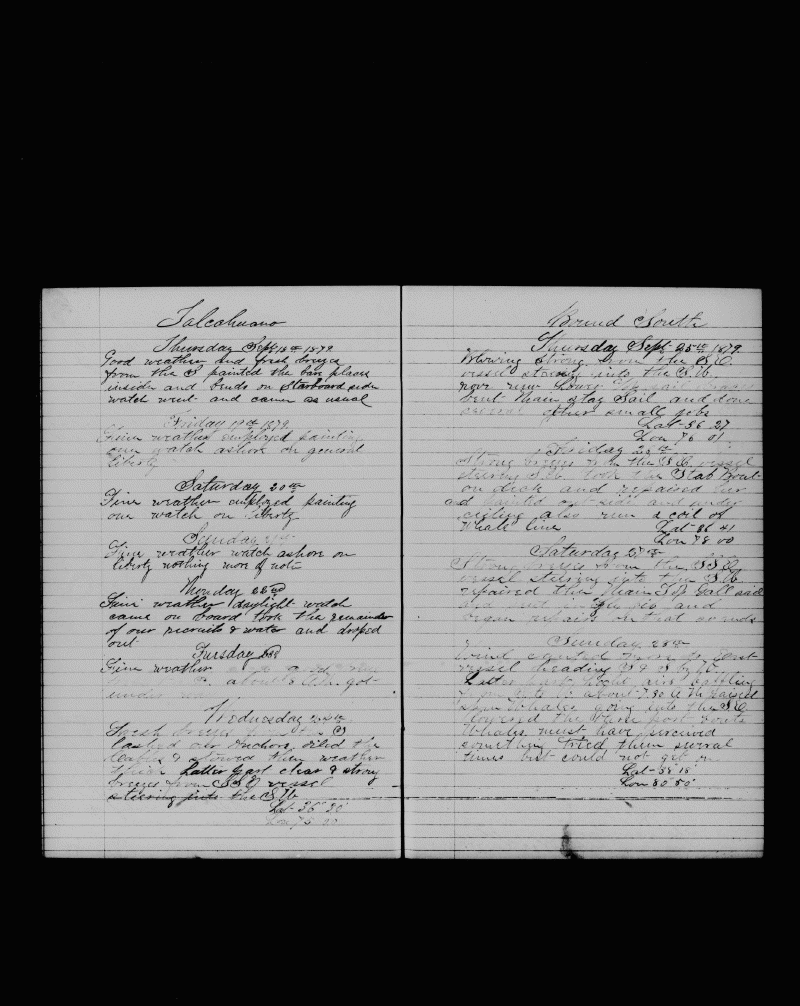 Talcahuano
Thursday Sept 18th 1879
Good weather and fresh breeze
from the S painted the bare places
insider and bends on Starboard side
watch went and came as usual
Friday 19th 1879
Fine weather employed painting
one watch ashore on general
liberty
Saturday 20th
Fine weather employed painting
one watch on liberty
Sunday 21st
Fine weather watch ashore on
liberty nothing more of note
Monday 22nd
Fine weather daylight watch
came on board took the remainder
of our recruits & water and dropped
out
Tuesday 23d
Fine weather
about 8 AM got
under way
Wednesday 24th
Fresh breeze from the S
lashed our anchors, oiled the
cables & stowed them weather
thick Latter part clear & strong
breeze from SSE vessel
steering into the SW
Lat 36 30
Lon 75 00
Bound South
Thursday Sept 25th 1879
Blowing strong from the SE
vessel steering into the S.W.
bent Main stay Sail and done
several other small jobs
Lat 36 27
Lon 76 01
Friday 26th
Strong breezes from the SE vessel
steering S.W. took the Starb Boat
on deck and repaired her
and painted out side and under
ceiling also run a coil of
Whale line
Lat 36 41
Lon 78 00
Saturday 27th
Strong breezes from the SSE
vessel steering into the S.W.
repaired the Main T. Gall sail
and
began repairs on
Sunday 28th
Wind canted more to East
vessel heading S & S by W
Latter part light and baffling
from about 7.30 A.M. raised
Whales going into the SE
lowered the three port boats
Whales must have perceived
something tried them several
times but could not get on
Lat 38 18
Lon 80 50